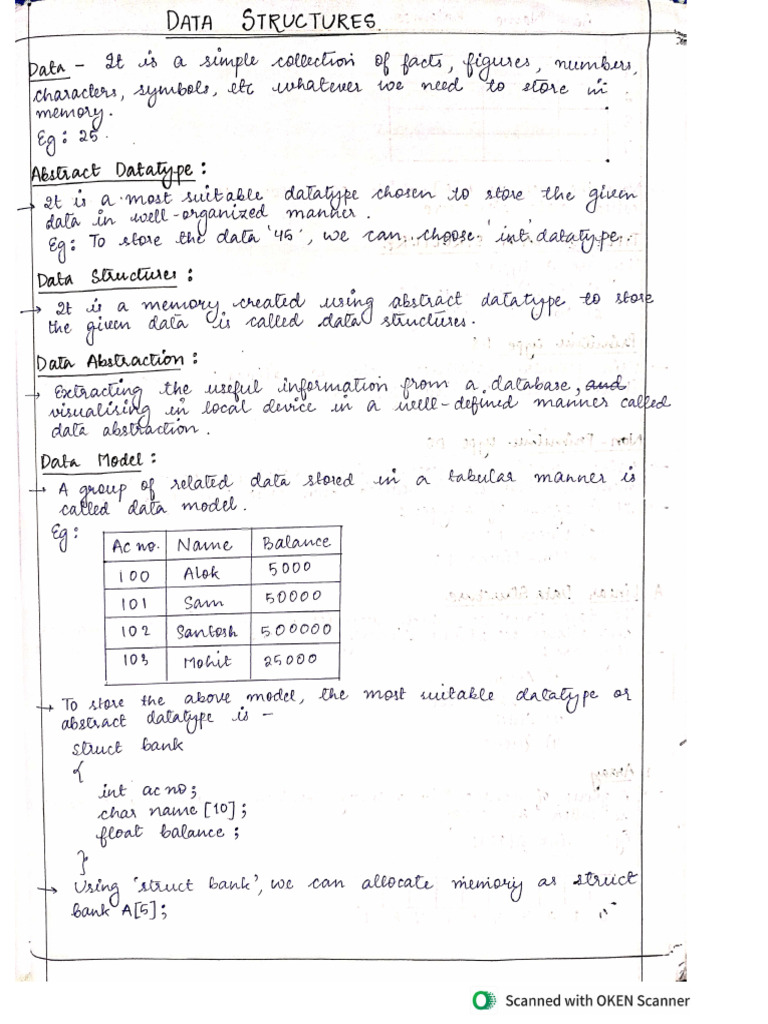 DATA STRUCTURES.
Data - It is a simple collection of facts, figures, numbers,
characters, symbols, etc whatever we need to store in
memory.
Eg: 25.
Abstract Datatype:
→ It is a most suitable datatype chosen to store the given
data in well-organized manner.
Eg: To store the data '45', we can choose 'int' datatype.
Data Structures:
→ It is a memory created using abstract datatype to store
the given data is called data structures.
Data Abstraction:
→ Extracting the useful information from a database, and
visualising in local device in a well-defined manner called
data abstraction.
Data Model:
→ A group of related data stored in a tabular manner is
called data model.
Eg:
Ac no. Name Balance
100 Alok 5000
101 Sam 50000
102 Santosh 500000
103 Mohit 25000
→ To store the above model, the most suitable datatype or
abstract datatype is -
struct bank
{
int ac no;
char name [10];
float balance;
}
→ Using 'struct bank', we can allocate memory as struct
bank A[5];
Scanned with OKEN Scanner